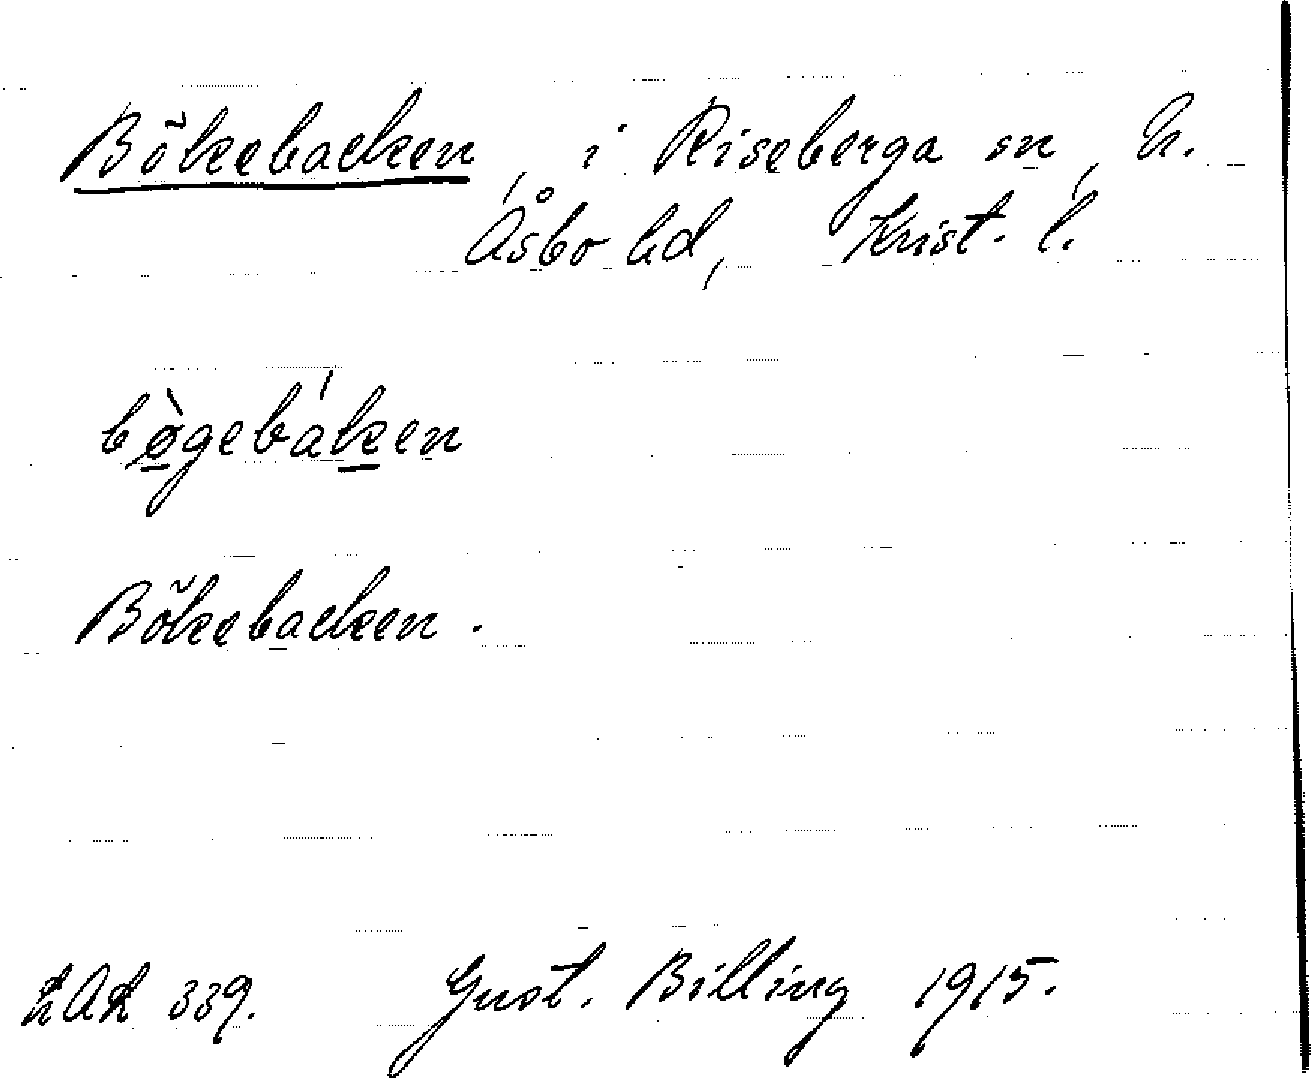 Bökebacken, i Riseberga sn, N.
Åsbo hd, Krist. l.
bø̀gebáken
Bökebacken.
LAL 339. Gust. Billing 1915.